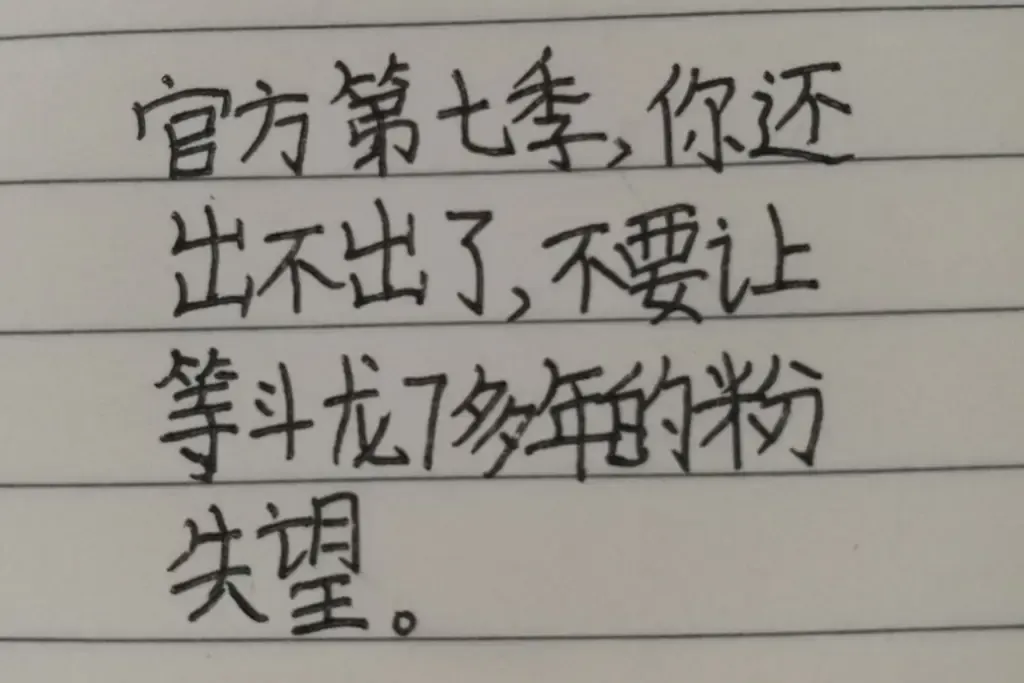 官方第七季,你还
出不出了,不要让
等斗龙7多年的粉
失望。